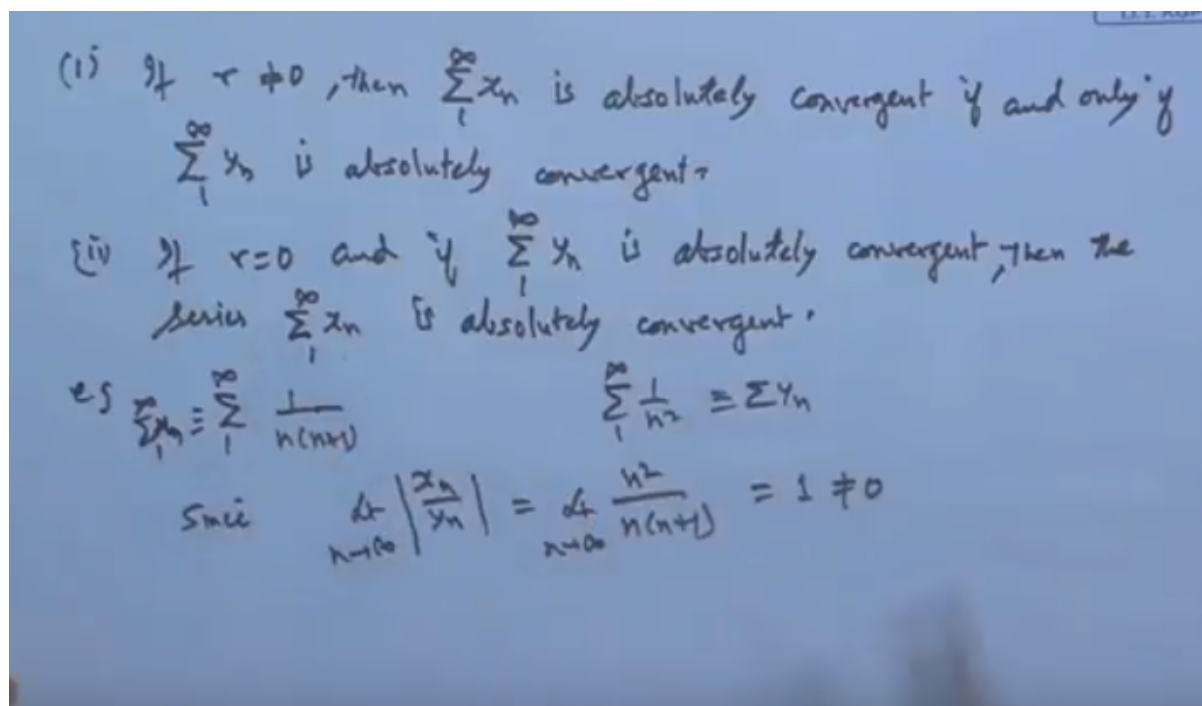 (i) If r ≠ 0, then ∑_1^∞ x_n is absolutely convergent if and only if
∑_1^∞ y_n is absolutely convergent.
(ii) If r=0 and if ∑_1^∞ y_n is absolutely convergent, then the
series ∑_1^∞ x_n is absolutely convergent.
eg ∑_1^∞ x_n ≡ ∑_1^∞ 1/n(n+1) ∑_1^∞ 1/n² ≡ ∑ y_n
Since Lt_{n→∞} |x_n/y_n| = Lt_{n→∞} n²/n(n+1) = 1 ≠ 0